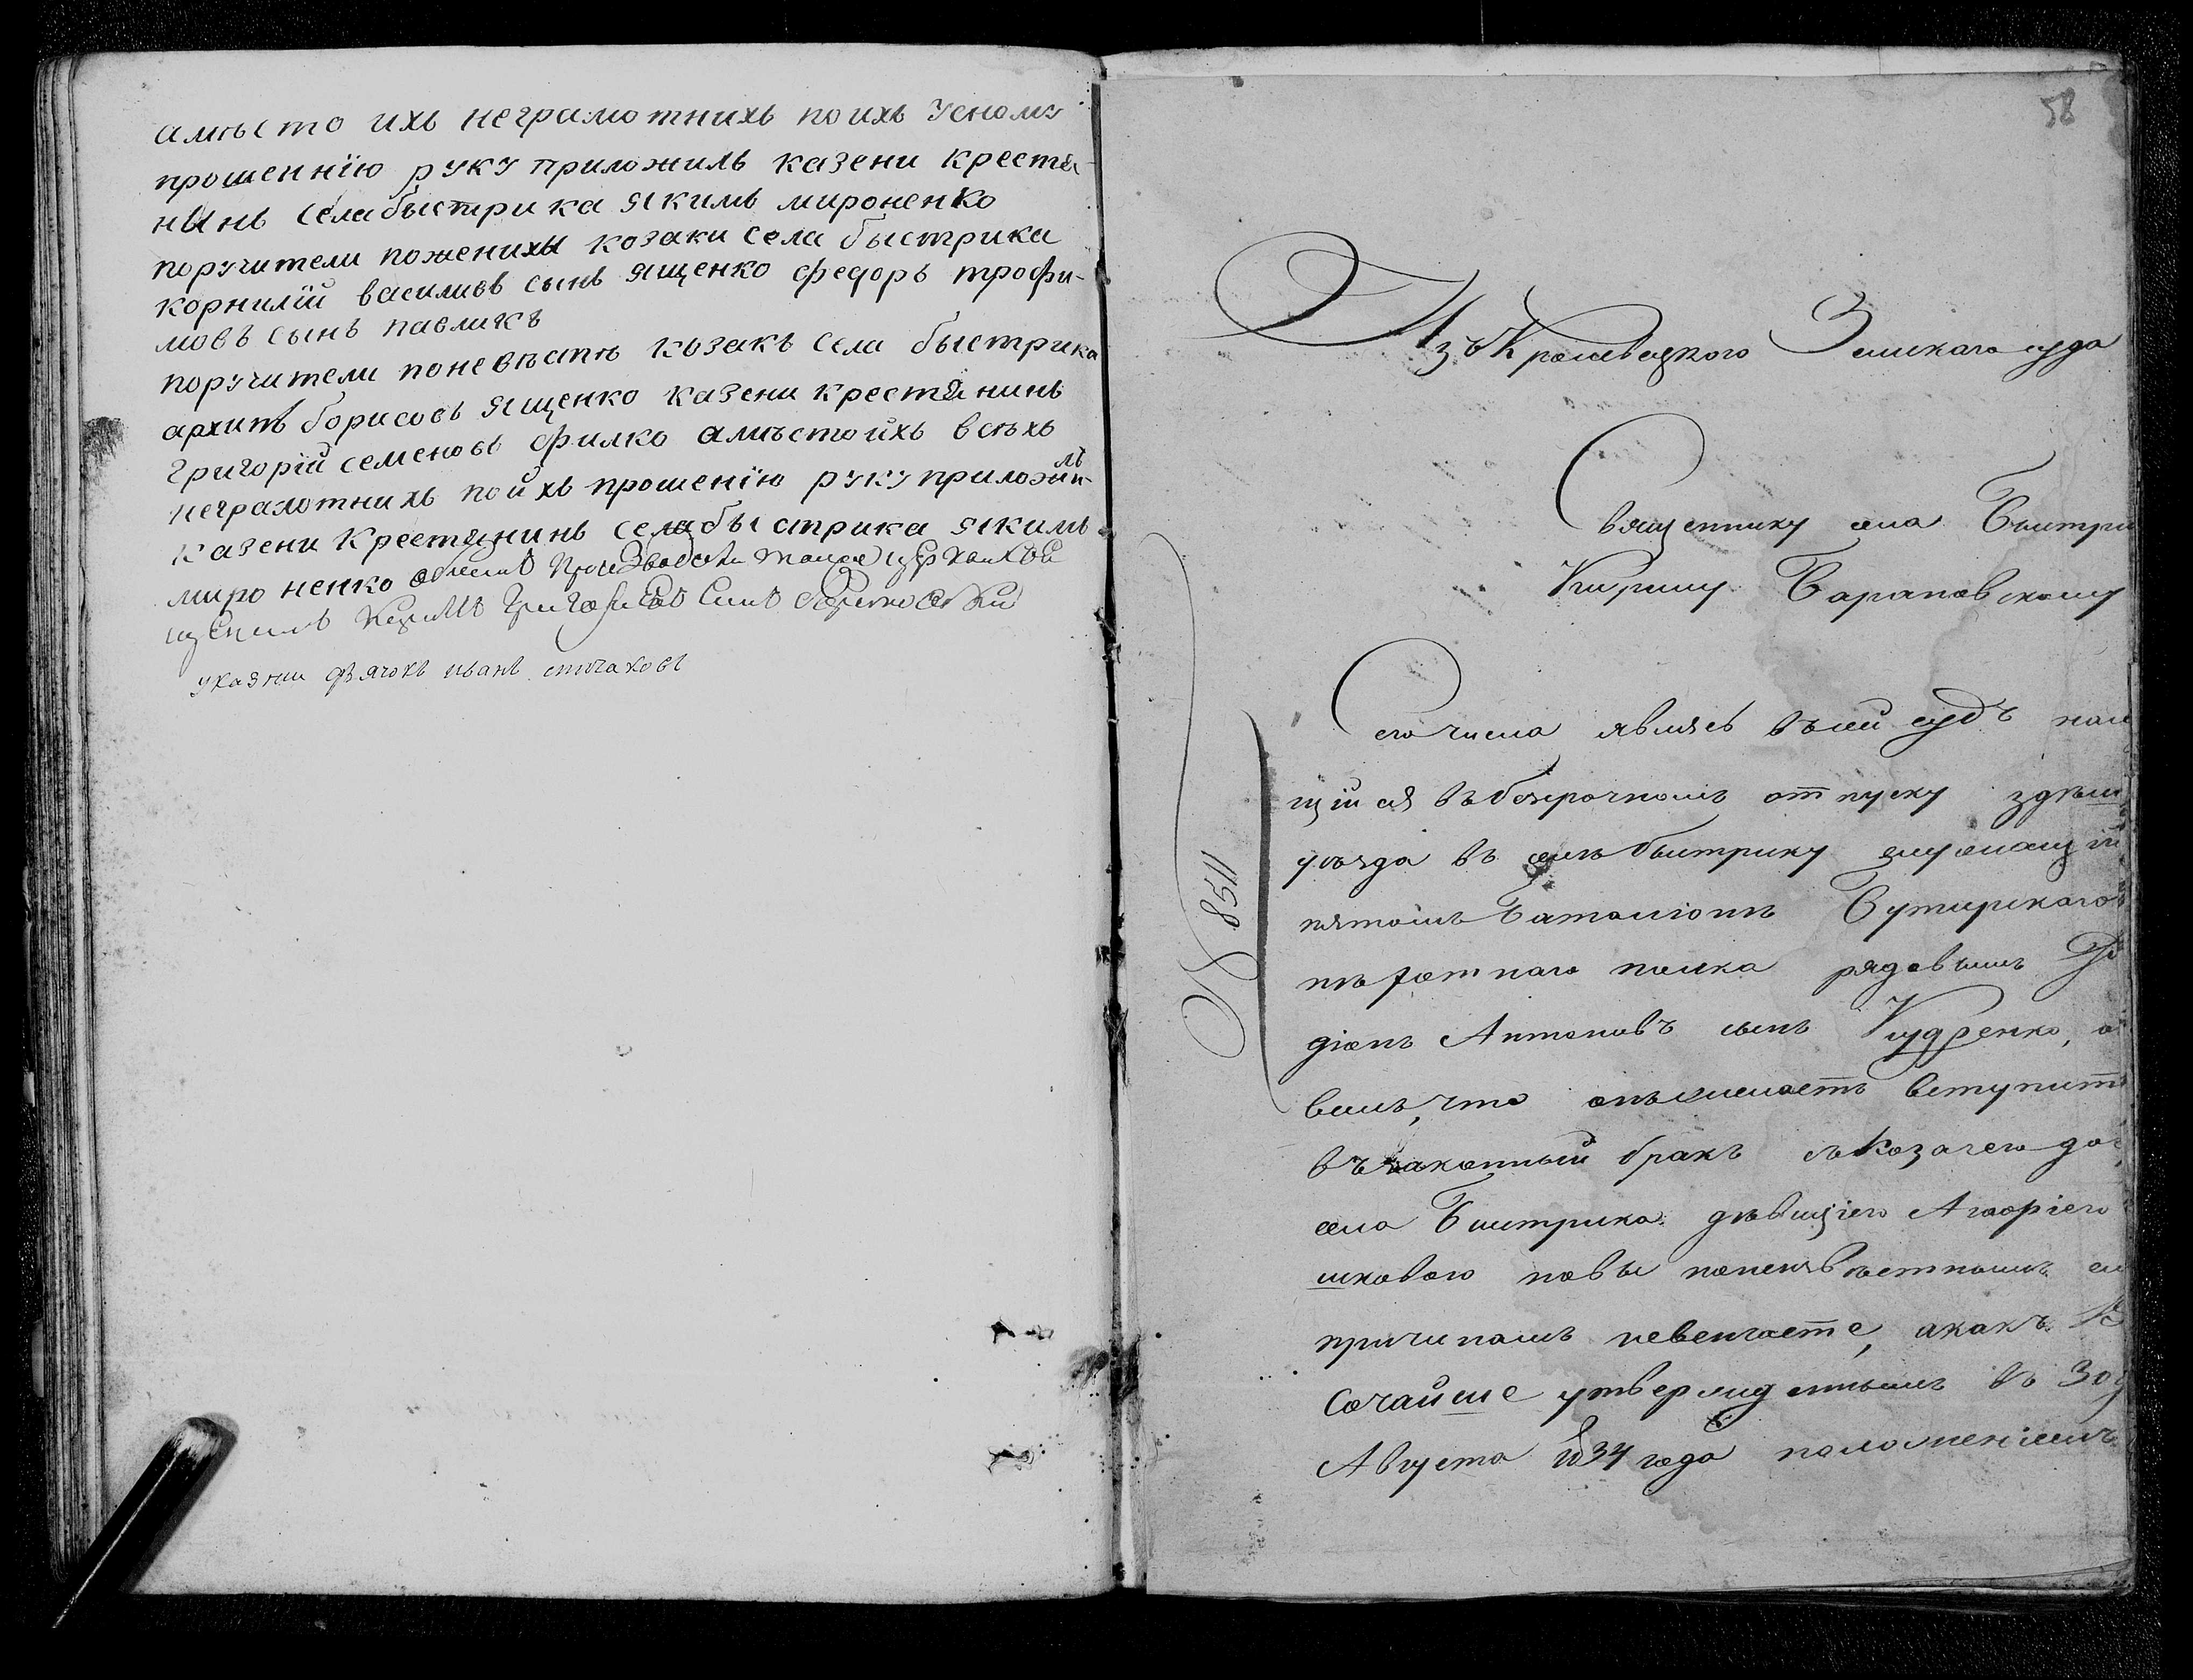 амѣсто ихъ неграмотнихъ по ихъ Усному
прошеннїю руку приложилъ казени крестя-
нынъ села быстрика якимъ мироненко
поручители поженихы козаки села быстрика
корнилїй василиевъ сынъ ященко федоръ трофи-
мовъ сынъ павликъ
поручители поневѣстѣ козакъ села быстрика
архипъ борисовъ ященко казени крестянинъ
григорїй семеновъ филко амѣсто ихъ всѣхъ
неграмотнихъ по ихъ прошенїю руку приложи-
лъ
казени крестянинъ села быстрика якимъ
мироненко обискъ Производили тоея церкви
священикъ Григориевъ Синъ
указни дьячокъ иванъ
58
Изъ Кролевецкого Земскаго суда
Священнику села Быстри
Кирилу Барановскому
8511
Сего числа являсь въсей судъ нахо
щійся въ безсрочномъ отпуску здѣш
уѣзда въ селѣ быстрику служащій
пятомъ баталіонѣ Бутырскаго
пѣхотнаго полка рядовымъ Ро
діонъ Антоновъ сынъ Кудренко,
вилъ, что онъ желаетъ вступить
въ законный бракъ съ Козачею до
села Быстрика дѣвицею
шковою новы понеизвѣстнымъ
причинамъ невенчаете, акакъ В
сочайше утвержденнымъ въ 30 д
Августа 1834 года положеніемъ